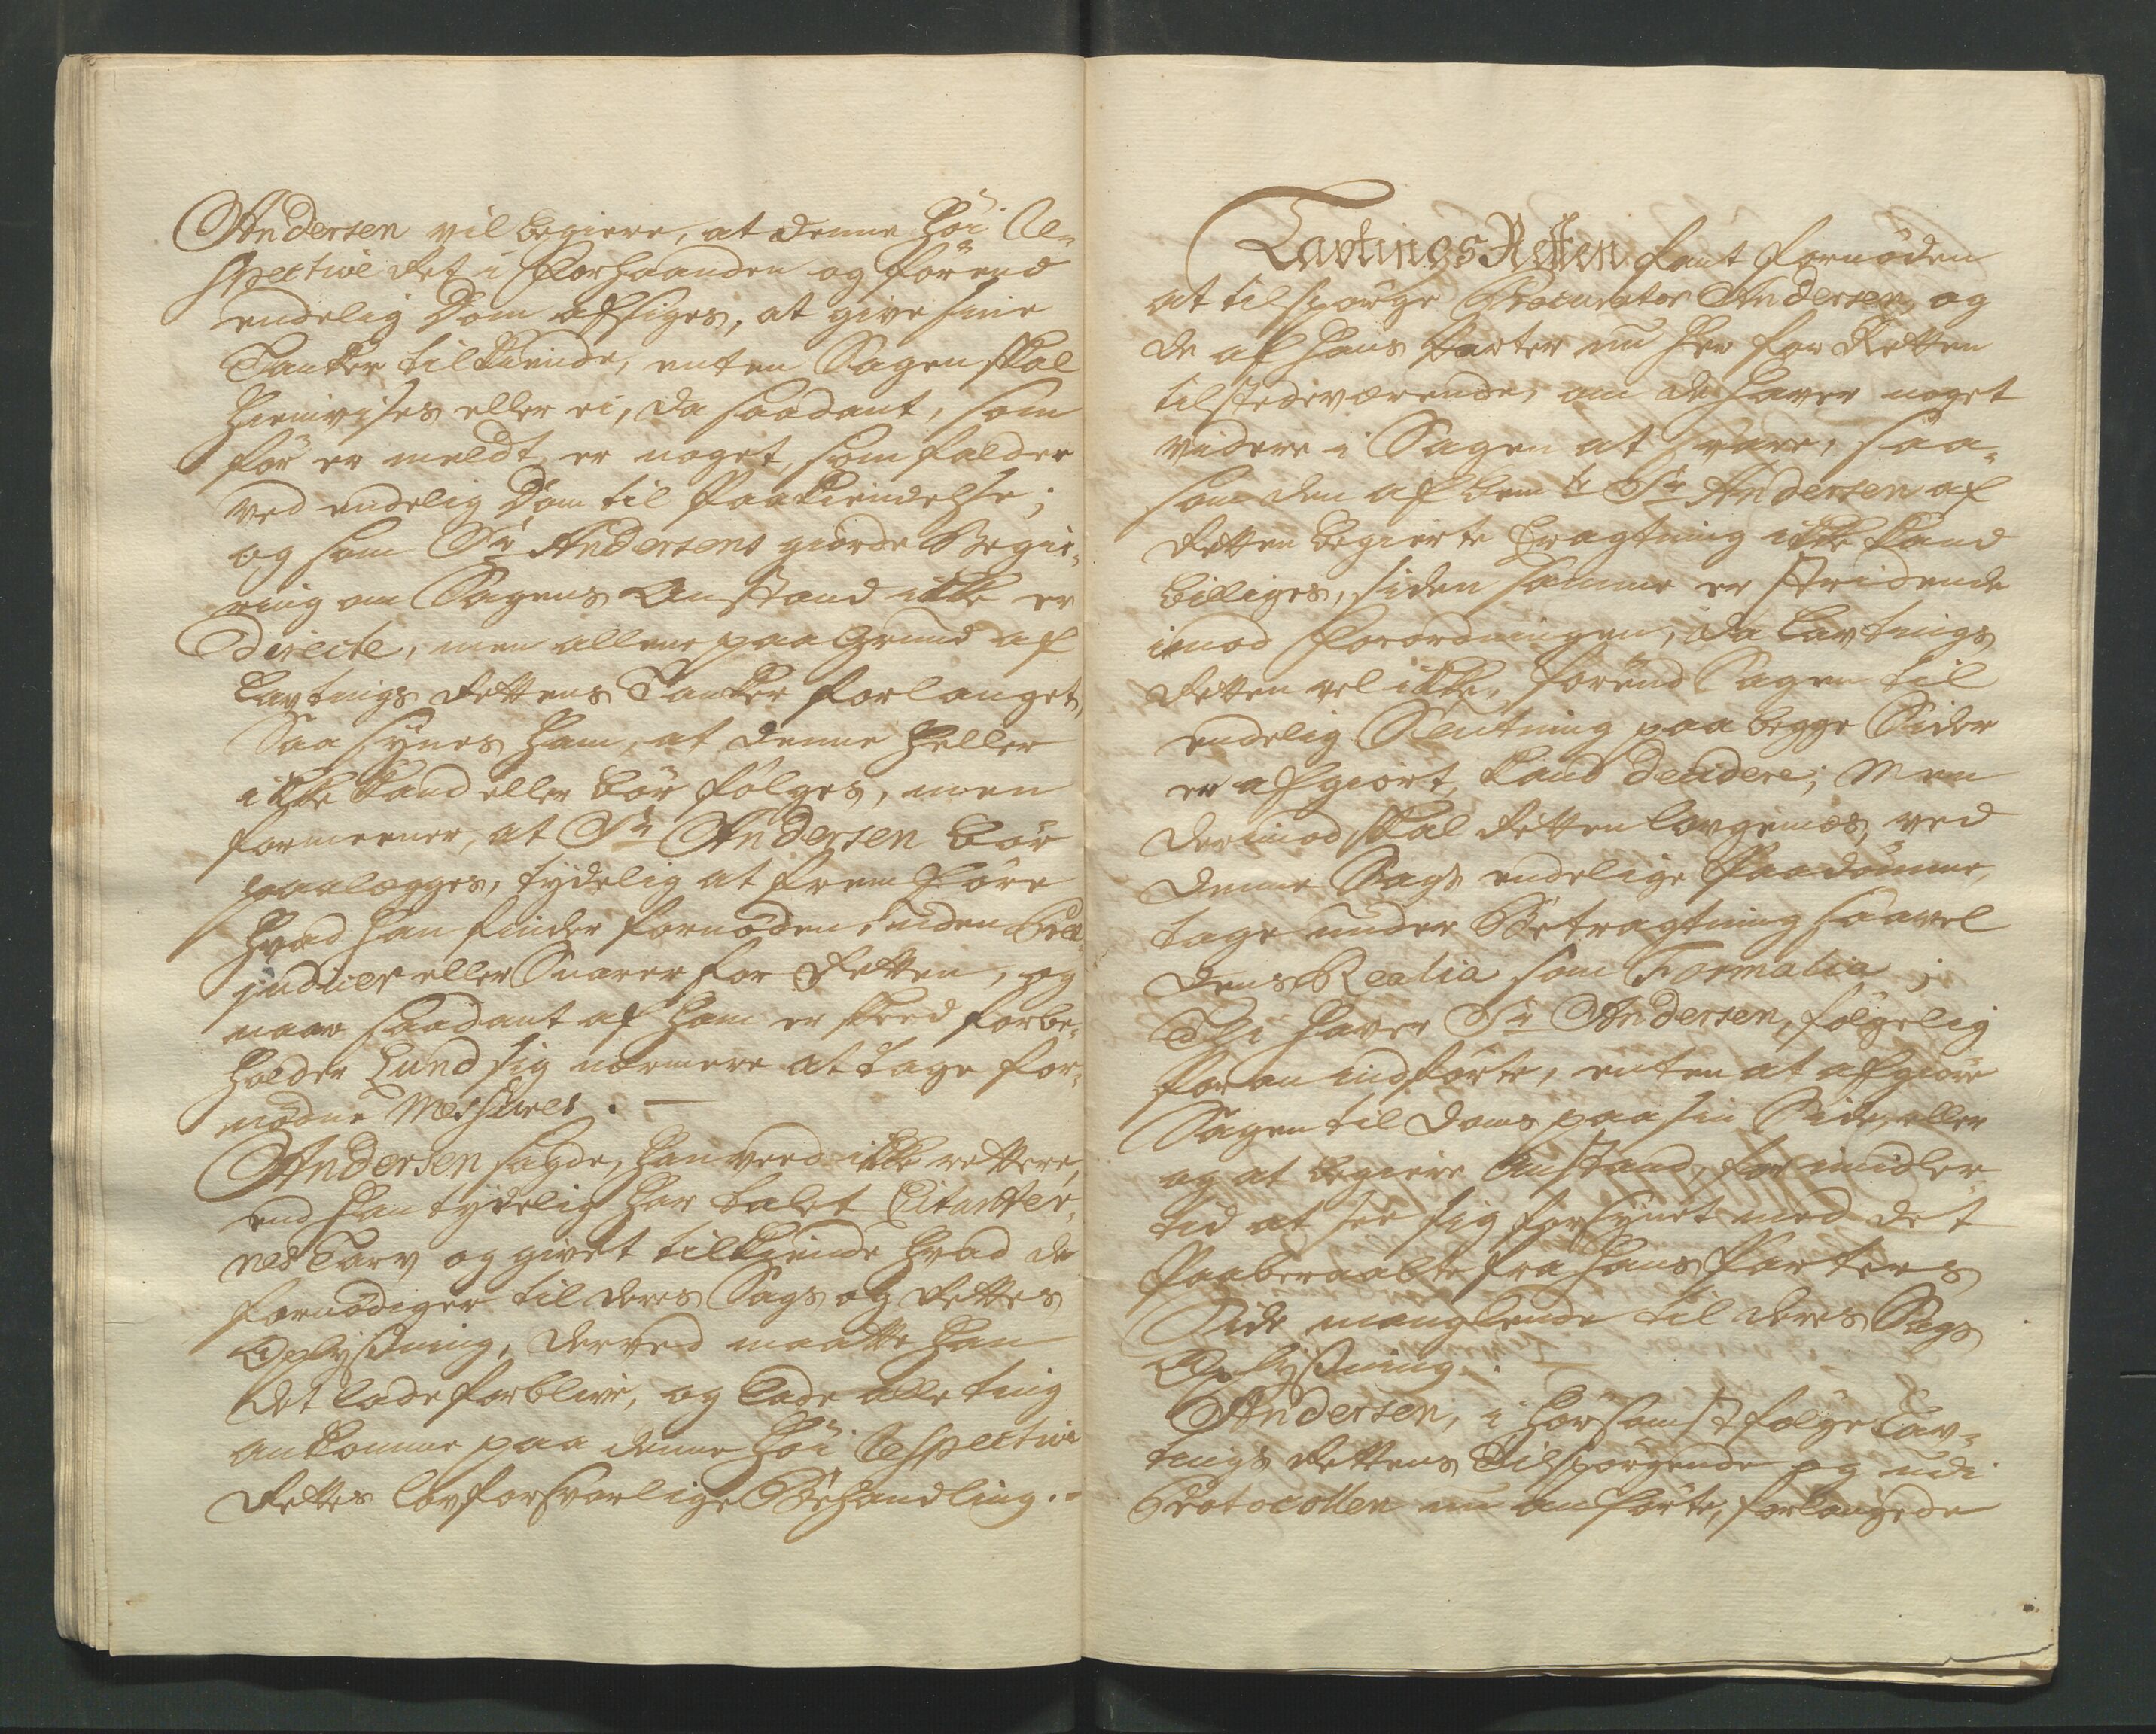 Andersen vil begiere, at denne Høi Re-
spective Ret i Forhaanden og førend
endelig Dom afsiges, at give sine
Tanker tilkiende, enten Sagen skal
hiemvises eller ei, da saadant, som
før er meldt, er noget, som falder
ved endelig Dom til Paakiendelse;
og som Sr Andersens giorde Begie-
ring om Sagens Anstand ikke er
Directe, men allene paa Grund af
Lavtings Rettens Tanker forlanget,
Saa synes ham, at denne heller
ikke kand eller bør følges, men
formeener, at Sr Andersen bør
paalegges, tydelig at frem føre
hvad han finder fornøden, uden Præ-
judicer eller Snarer for Retten, og
naar saadant af ham er skeed forbe-
holder Lund sig nærmere at tage for-
nødne Messures. —
Andersen sagde, han veed ikke rettere,
end han tydelig har talet Citanter-
nes Tarv og givet tilkiende hvad de
fornødiger til deres Sags og Rettes
Oplysning, derved maatte han
det lade forblive, og lade alle ting
ankomme paa denne Høi Respective
Rettes lovforsvarlige Behandling. -
LavtingsRetten fant fornøden
at tilspørge Procurator Andersen, og
de af hans Parter nu her for Retten
tilstedeværende, om de haver noget
videre i Sagen at svare, saa-
som den af bemte Sr Andersen af
Retten begierte Eragtning ikke kand
billiges, siden samme er stridende
imod Forordningen, da Lavtings
Retten vel ikke, førend Sagen til
endelig Slutning paa begge Sider
er afgiort, kand decidere; Men
derimod skal Retten lovgemæs, ved
denne Sags endelige Paadømme,
tage under Betragtning saavel
dens Realia som Formalia;
Thi haver Sr Andersen, følgelig
foran indførte, enten at afgiøre
Sagen til Doms paa sin Side, eller
og at begiere Anstand, for imidler
tid at see sig forsynet med det
Paaberaabte fra hans Parters
Side manglende til deres Sags
Oplysning. —
Andersen, i hørsomst følge Lav-
tings Rettens Tilspørgende og udi
Protocollen nu anførte, forlangede